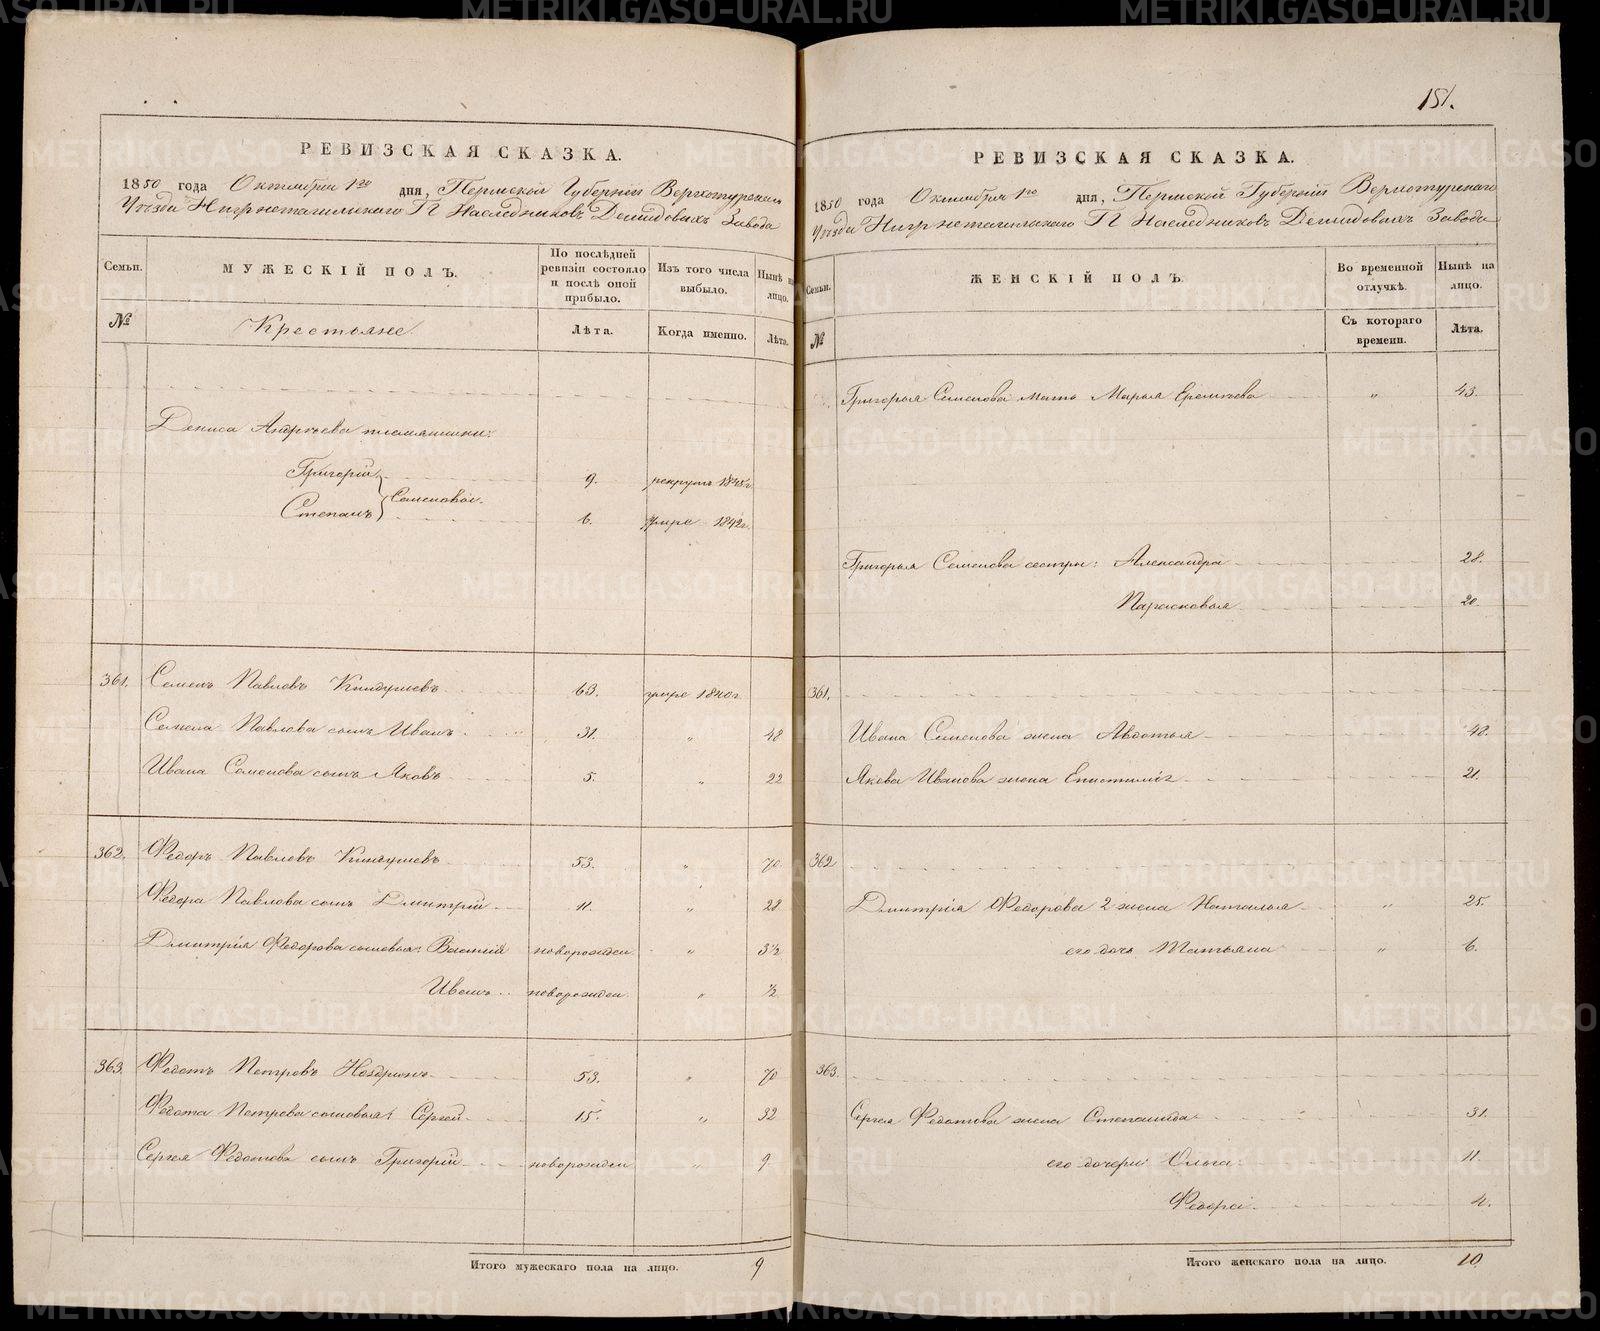 151.
РЕВИЗСКАЯ СКАЗКА.
1850 года Октября 1го дня, Пермской Губерніи Верхотурскаго
Уѣзда Нижнетагильскаго Г Наслѣдниковъ Демидовыхъ Завода
Семьи. МУЖЕСКІЙ ПОЛЪ. По послѣдней ревизіи состояло и послѣ оной прибыло. Изъ того числа выбыло. Нынѣ на лицо.
№ Крестьяне. Лѣта. Когда именно. Лѣта.
Дениса Андреева племянники:
Григорій 9. рекрутъ 1845г.
Степанъ Семеновы. 6. умре 1842г.
361. Семенъ Павловъ Киндушевъ 63. умре 1840г.
Семена Павлова сынъ Иванъ 31. " 48
Ивана Семенова сынъ Яковъ 5. " 22
362. Федоръ Павловъ Киндушевъ 53. " 70.
Федора Павлова сынъ Дмитрій 11. " 28
Дмитрія Федорова сыновья: Василій новорожден. " 3½
Иванъ новорожден. " ½
363. Федотъ Петровъ Ноздринъ 53. " 70
Федота Петрова сыновья: Сергей 15. " 32
Сергея Федотова сынъ Григорій новорожден " 9
Итого мужескаго пола на лицо. 9
РЕВИЗСКАЯ СКАЗКА.
1850 года Октября 1го дня, Пермской Губерніи Верхотурскаго
Уѣзда Нижнетагильскаго Г Наслѣдниковъ Демидовыхъ Завода
Семьи. ЖЕНСКІЙ ПОЛЪ. Во временной отлучкѣ. Нынѣ на лицо.
№ Съ котораго времени. Лѣта.
Григорья Семенова мать Марья Еремѣева " 43.
Григорья Семенова сестры: Александра 28.
Парасковья 20.
361.
Ивана Семенова жена Авдотья 48.
Якова Иванова жена Епистимія 21.
362
Дмитрія Федорова 2 жена Наталья " 25.
его дочь Татьяна " 6.
363.
Сергея Федотова жена Степанида 31.
его дочери Ольга 11.
Федора 4.
Итого женскаго пола на лицо. 10.
METRIKI.GASO-URAL.RU